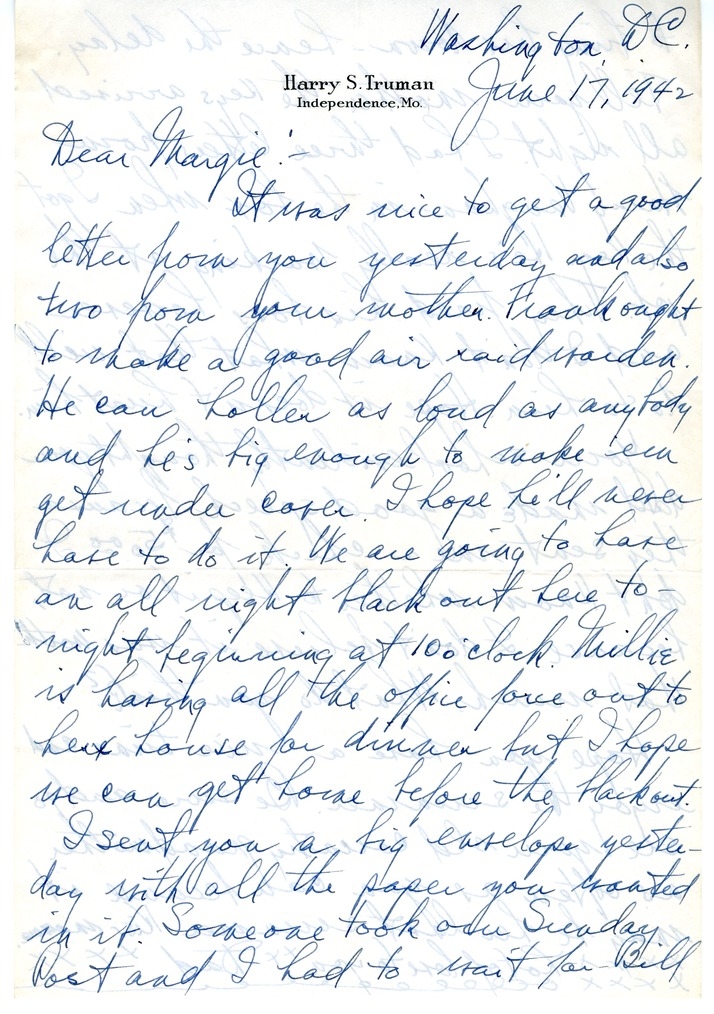 Washington, D.C.
Harry S. Truman
Independence, Mo.
June 17, 1942
Dear Margie:-
It was nice to get a good
letter from you yesterday and also
two from your mother. Frank ought
to make a good air raid warden.
He can holler as loud as anybody
and he's big enough to make 'em
get under cover. I hope he'll never
have to do it. We are going to have
an all night black out here to-
night beginning at 10 o'clock. Millie
is having all the office force out to
her house for dinner but I hope
we can get home before the blackout.
I sent you a big envelope yester-
day with all the paper you wanted
in it. Someone took our Sunday
Post and I had to wait for Bill